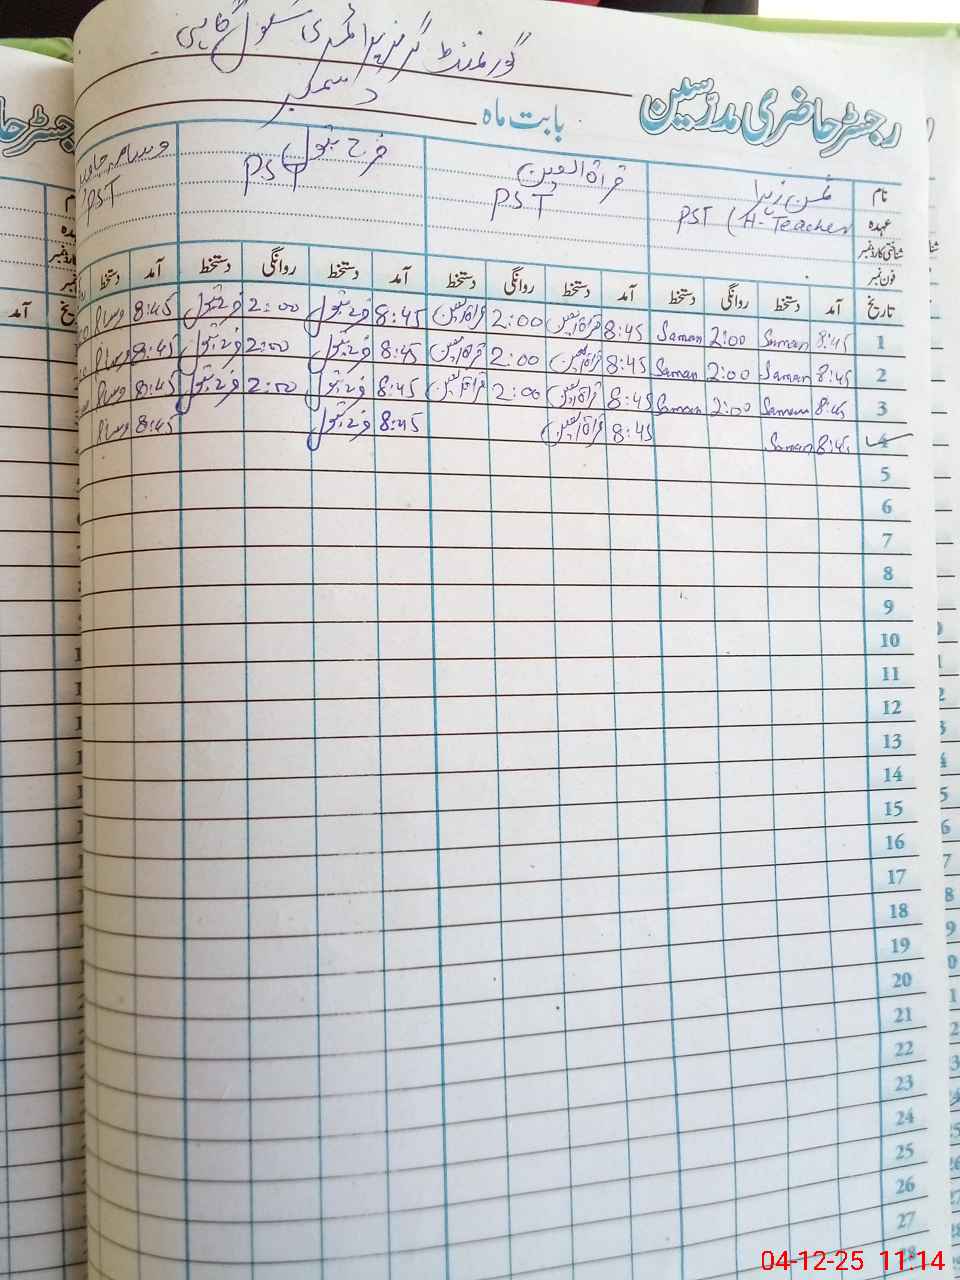 گورنمنٹ گرلز پرائمری سکول
رجسٹر حاضری مدرسین
بابت ماہ دسمبر
نام ثمن زہرا قراۃ العین فرح بتول
عہدہ PST (H-Teacher PST PST PST
شناختی کارڈ نمبر
فون نمبر
تاریخ آمد دستخط روانگی دستخط آمد دستخط روانگی دستخط آمد دستخط روانگی دستخط آمد دستخط
1 8:45 Saman 2:00 Saman 8:45 قراۃ العین 2:00 قراۃ العین 8:45 فرح بتول 2:00 فرح بتول 8:45
2 8:45 Saman 2:00 Saman 8:45 قراۃ العین 2:00 قراۃ العین 8:45 فرح بتول 2:00 فرح بتول 8:45
3 8:45 Saman 2:00 Saman 8:45 قراۃ العین 2:00 قراۃ العین 8:45 فرح بتول 2:00 فرح بتول 8:45
4 8:45 Saman 8:45 قراۃ العین 8:45 فرح بتول 8:45
5
6
7
8
9
10
11
12
13
14
15
16
17
18
19
20
21
22
23
24
25
26
27
28
04-12-25 11:14